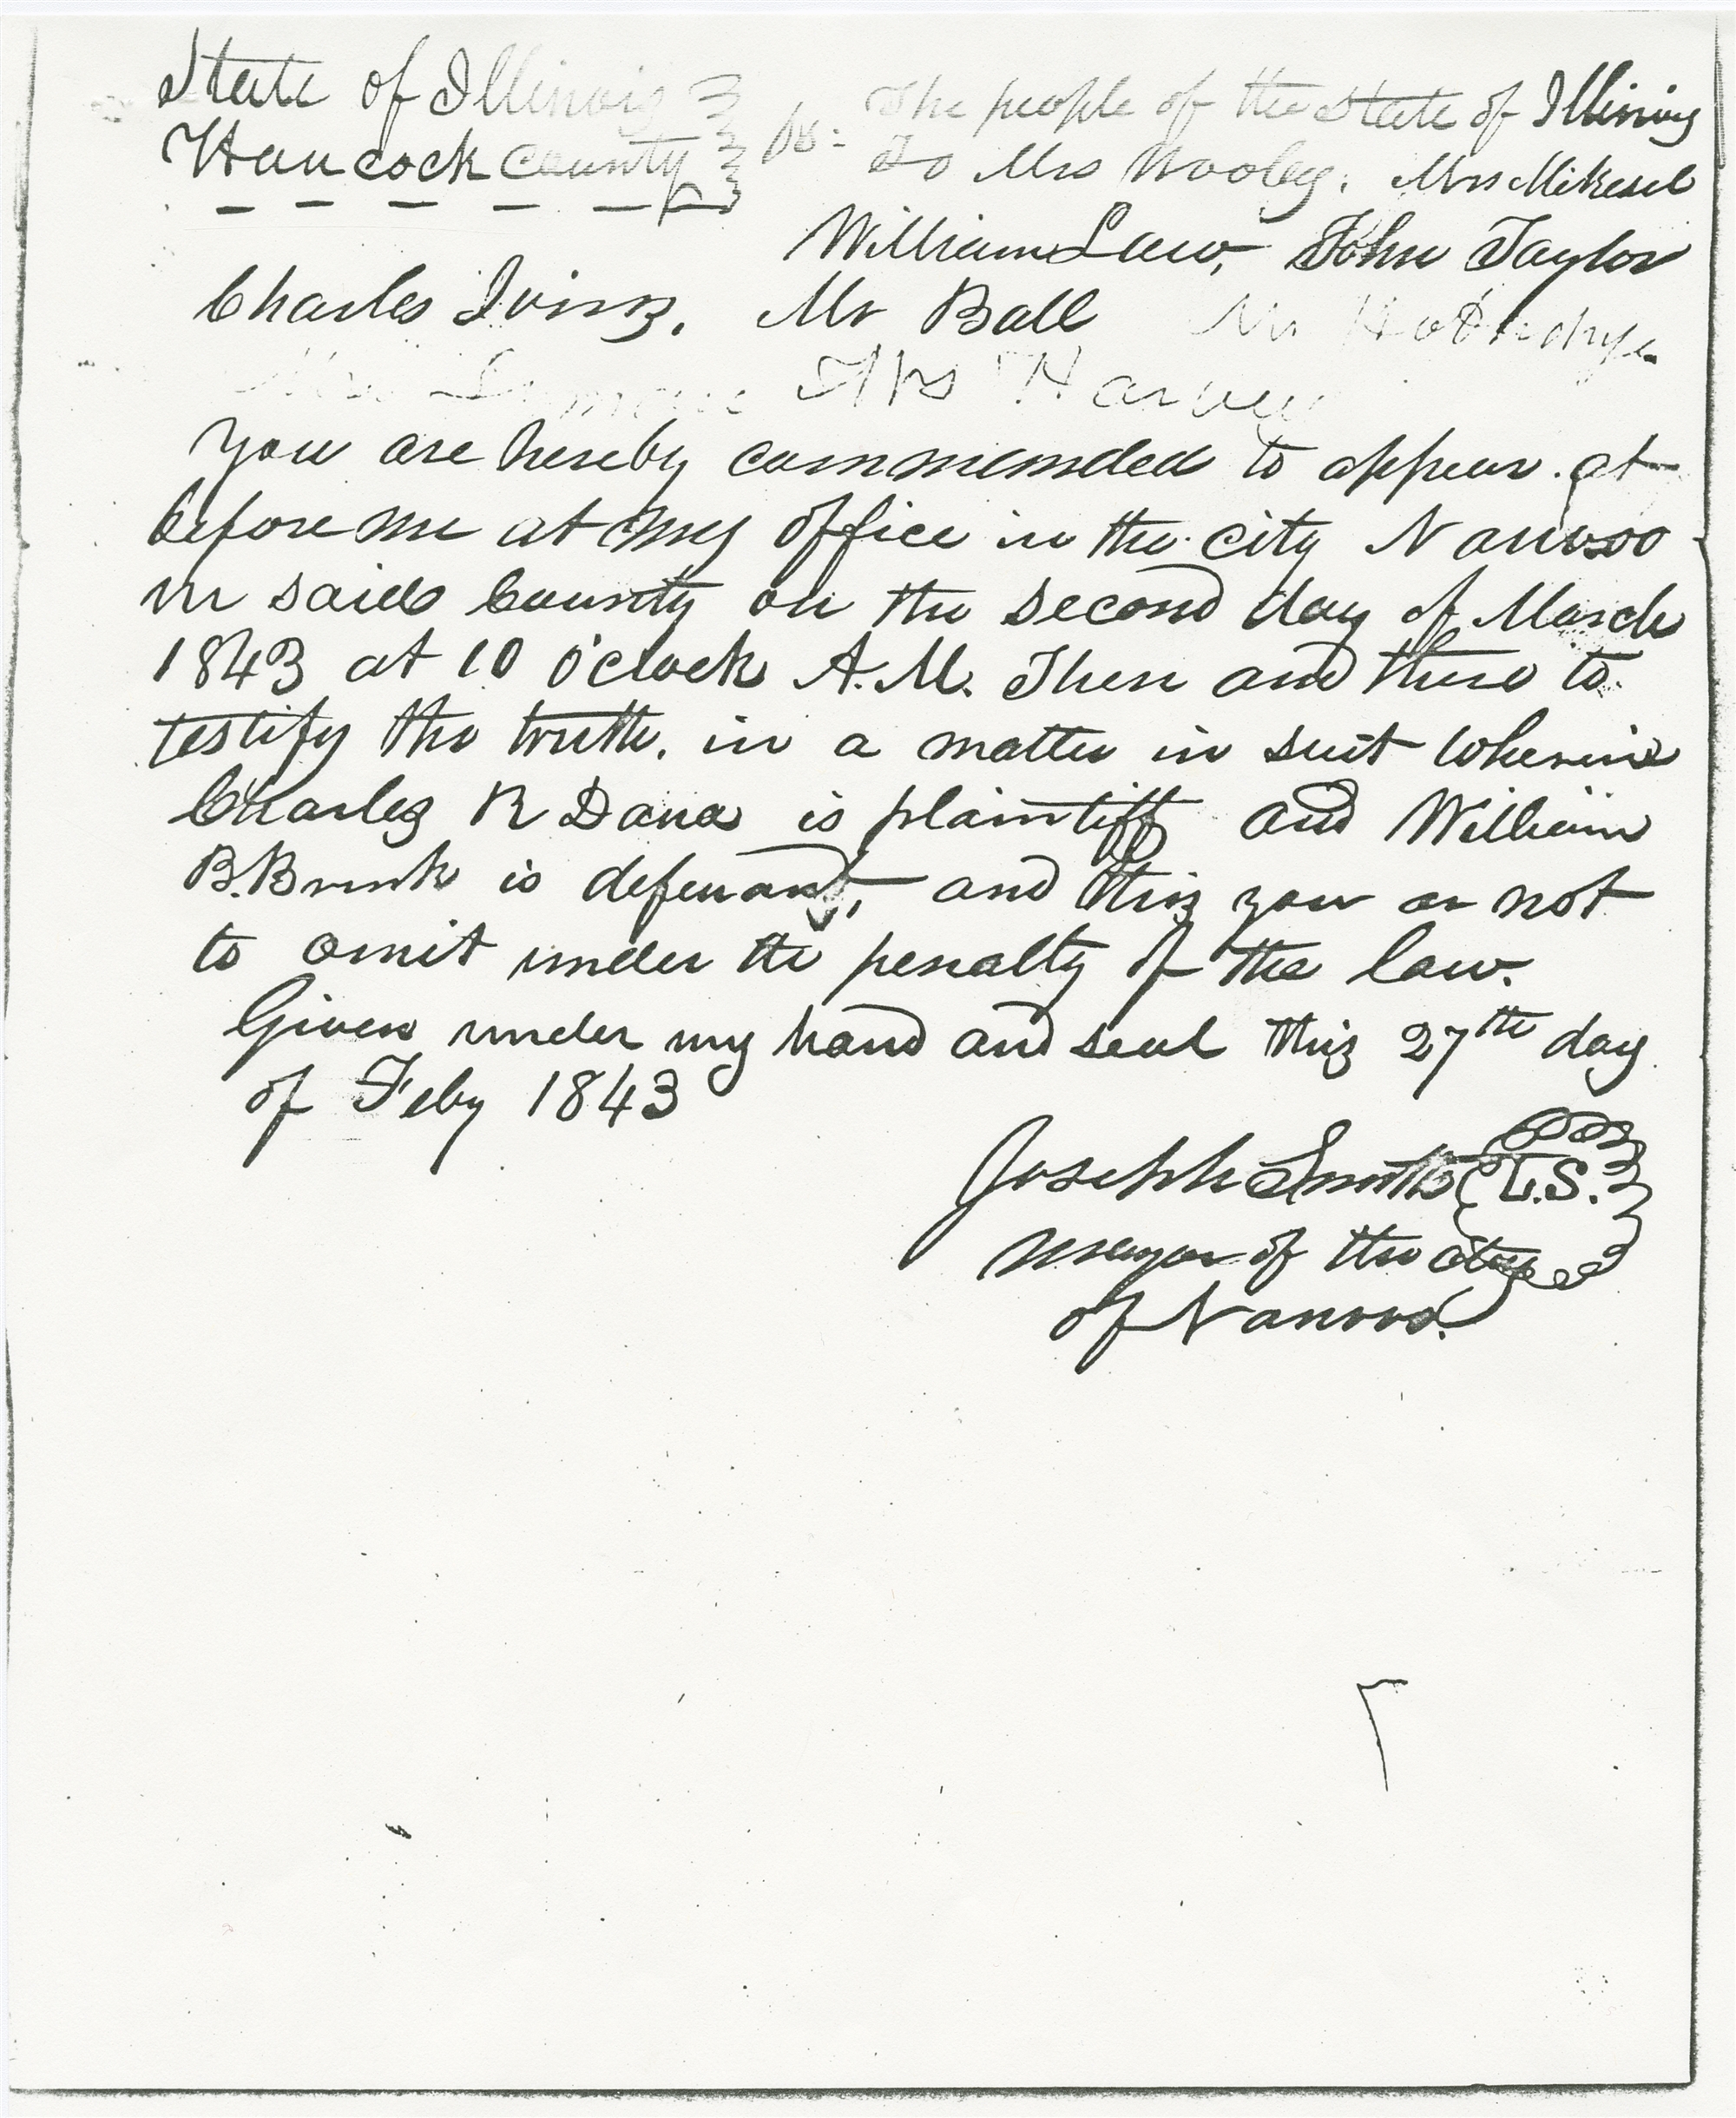 State of Illinois } ss: The people of the State of Illinois
Hancock County } To Mrs Wooley. Mrs Mikesel
William Law, John Taylor
Charles Ivins. Mr Ball Mr
Mrs Harvey
You are hereby commanded to appear at
before me at my office in the city Nauvoo
in said County on the second day of March
1843 at 10 o'clock A.M. Then and there to
testify the truth. in a matter in suit wherein
Charles R Dana is plaintiff and William
B. Brink is defenant, and this you are not
to omit under the penalty of the law.
Given under my hand and seal this 27th day
of Feby 1843
Joseph Smith L.S.
mayor of the city
of Nauvoo.